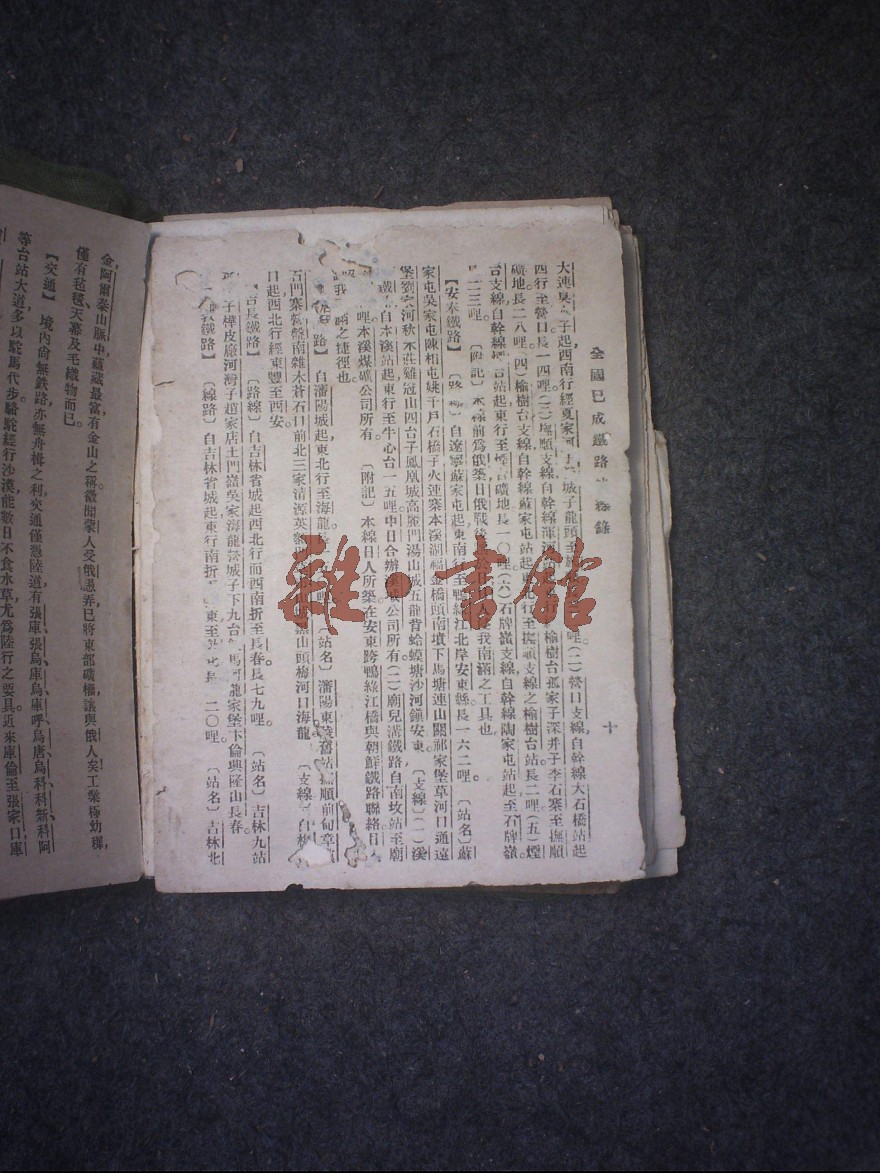 全國已成鐵路
十
大連臭 子起西南行經夏家河 城子龍頭至 哩(二)營口支線自幹線大石橋站起
四行至營口長一四哩(三)撫順支線自幹線渾 行 榆樹台孤家子深井子李石寨至撫順
礦地長二八哩(四)榆樹台支線自幹線蘇家屯站起 行至撫順支線之榆樹台站長二哩(五)煙
台支線自幹線煙台站起東行至煙台礦地長一〇哩(六)石牌嶺支線自幹線陶家屯站起至石牌嶺
二三哩 〔附記〕本線前為俄築日俄戰後 我南滿之工具也
【安奉鐵路】 〔路線〕自遼寧蘇家屯起東南行至鴨綠江北岸安東縣長一六二哩 〔站名〕蘇
家屯吳家屯陳相屯姚千戶石橋子火連寨本溪湖福金橋頭南墳下馬塘連山關祁家堡草河口通遠
堡劉家河秋木莊雞冠山四台子鳳凰城高麗門湯山城五龍背蛤蟆塘沙河鎮安東 〔支線〕(一)溪
鐵 自本溪站起東行至牛心台一五哩中日合辦 公司所有(二)廟兒溝鐵路自南坟站至廟
哩本溪煤礦公司所有 〔附記〕本線日人所築在安東跨鴨綠江橋與朝鮮鐵路聯絡日人
我 滿之捷徑也
路】 自瀋陽城起東北行至海龍 〔站名〕瀋陽東陵舊站撫順前甸章黨
石門寨營盤南雜木蒼石口前北三家清源英額 山城 山頭梅河口海龍 〔支線〕自梅
口起西北行經東豐至西安
【吉長鐵路】 〔路線〕自吉林省城起西北行而西南折至長春長七九哩 〔站名〕吉林九站
子樺皮廠河灣子趙家店土門嶺吳家海龍營城子下九台 馬河龍家堡卡倫興隆山長春
鐵路】 〔線路〕自吉林省城起東行南折 東至 長一二〇哩 〔站名〕吉林北
雜·書館
金阿爾泰山脈中蘊藏最富有金山之稱微聞蒙人受俄愚弄已將東部礦權讓與俄人矣工業極幼稺
僅有毡毯天幕及毛織物而已
【交通】 境內尚無鐵路亦無舟楫之利交通僅憑陸道有張庫張烏庫烏庫呼烏唐烏科科新科阿
等台站大道多以駝馬代步駱駝經行沙漠能數日不食水草尤為陸行之要具近來庫倫至張家口庫